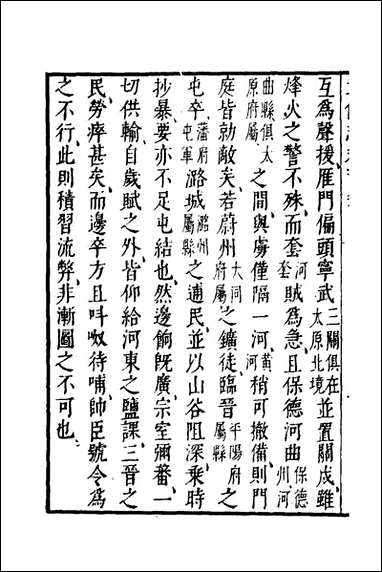 互為聲援雁門偏頭寧武三關俱在太原北境並置關戍雖
烽火之警不殊而套河套賊為急且保德河曲保德州河
曲縣俱太原府屬之間與虜僅隔一河黃河稍可撤備則門
庭皆勍敵矣若蔚州大同府屬之鑛徒臨晉平陽府屬縣之
屯卒瀋府屯軍潞城潞州屬縣之逋民並以山谷阻深乘時
抄暴要亦不足屯結也然邊餉既廣宗室彌蕃一
切供輸自歲賦之外皆仰給河東之鹽課三晉之
民勞瘁甚矣而邊卒方且呌呶待哺帥臣號令為
之不行此則積習流弊非漸圖之不可也